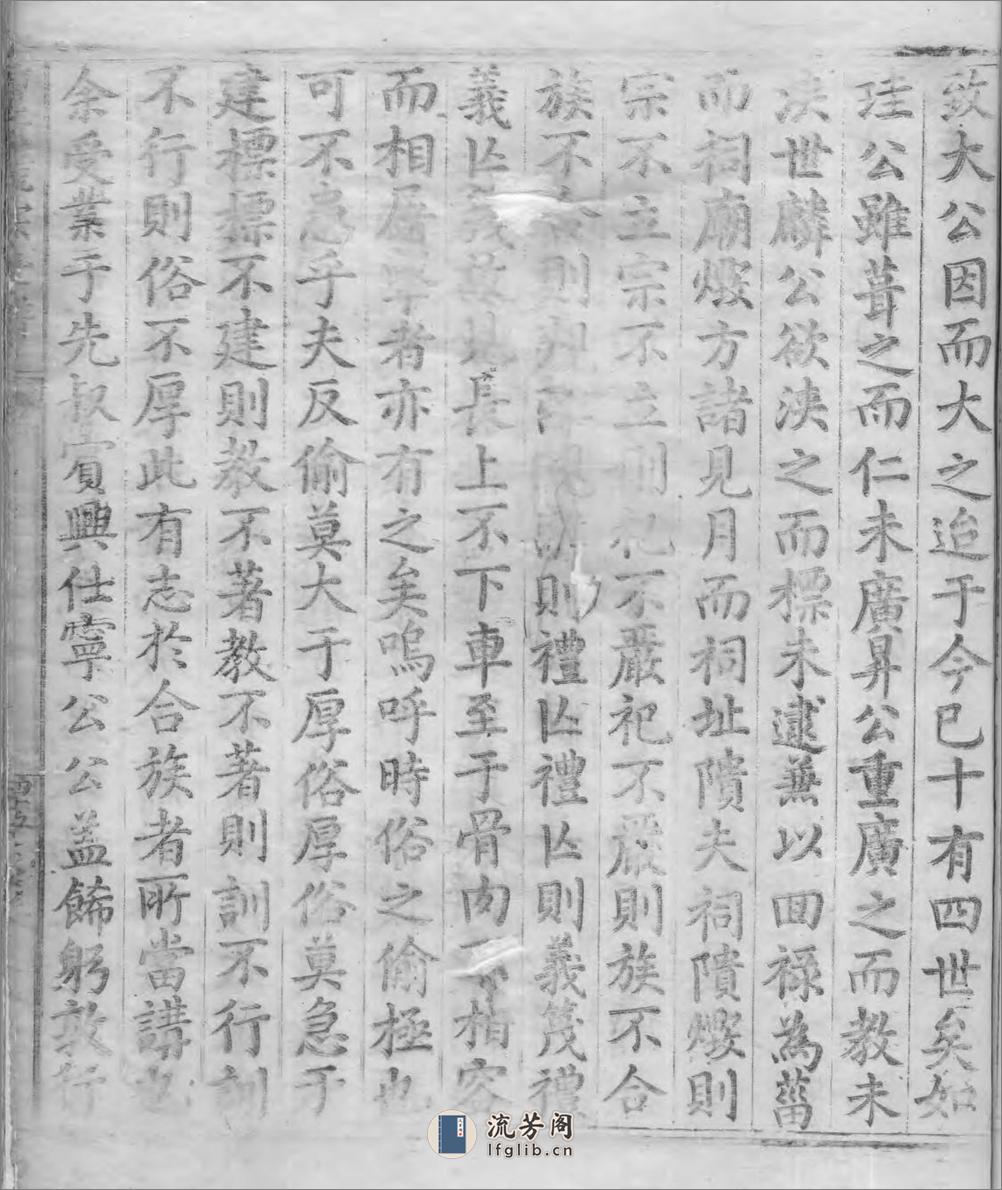 致大公因而大之迨于今已十有四世矣如
珪公雖葺之而仁未廣昇公重廣之而教未
浹世麟公欲浹之而標未逮兼以回祿為菑
而祠廟燬方諸見月而祠址隤夫祠隤燬則
宗不立宗不立則祀不嚴祀不嚴則族不合
族不則則禮亾禮亾則義篾禮
義亾長上不下車至于骨肉相容
而相者亦有之矣嗚呼時俗之偷極也
可不乎夫反偷莫大于厚俗厚俗莫急于
建標標不建則教不著教不著則訓不行訓
不行則俗不厚此有志於合族者所當講也
余受業于先叔賓興仕寧公公蓋餙躬敦行
流芳阁
lfglib.cn